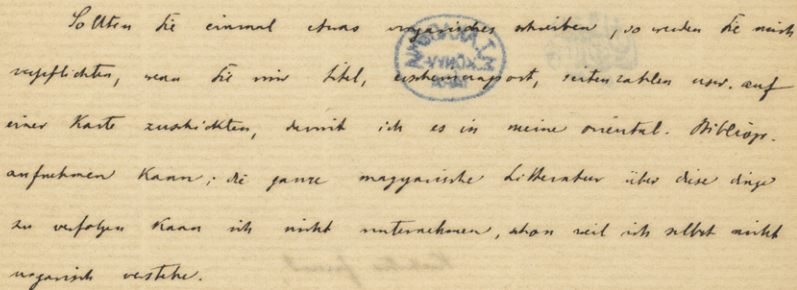 Sollten Sie einmal etwas ungarisches schreiben, so werden Sie mich
verpflichten, wenn Sie mir titel, erscheinungsort, seitenzahlen usw. auf
einer Karte zuschickten, damit ich es in meine oriental. Bibliogr.
aufnehmen kann; die ganze magyarische Litteratur über diese dinge
zu verfolgen kann ich nicht unternehmen, schon weil ich selbst nicht
ungarisch verstehe.